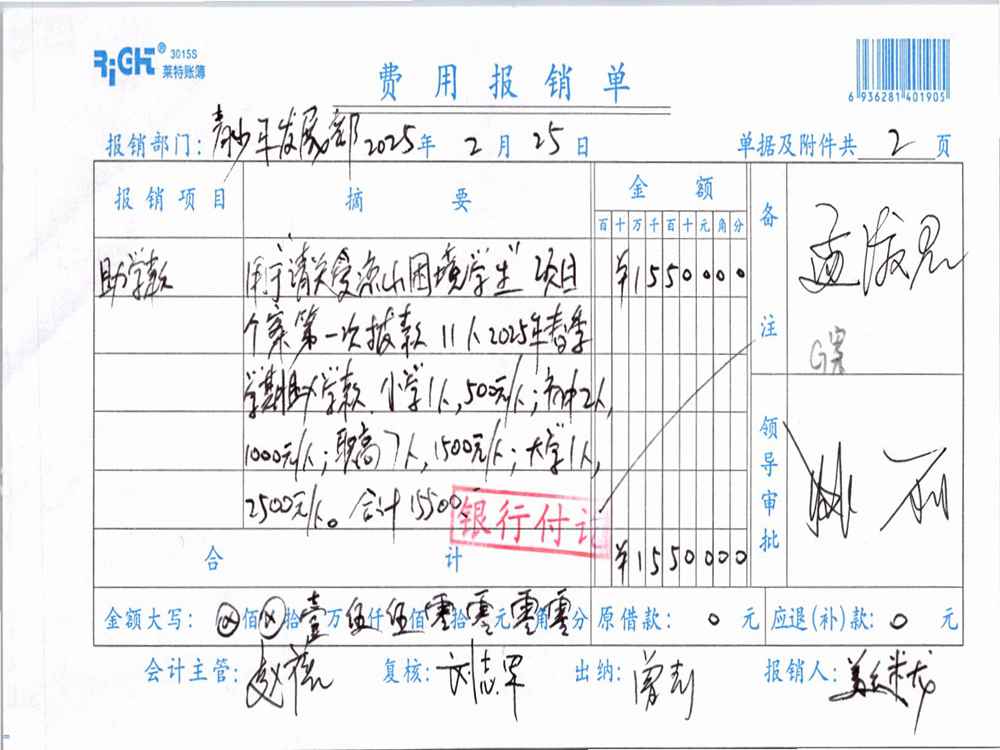 RiGHT® 3015S
莱特账簿
费用报销单
6 936281 401905
报销部门：青少年发展部 2025年 2月 25日 单据及附件共 2 页
报销项目 摘要 金额 备注
百十万千百十元角分
助学款 用于请关爱凉山困境学生 项目 ¥1550000
个案第一次拨款 11人 2025年春季
学期助学款. 小学1人, 500元/人; 初中2人,
1000元/人; 职高7人, 1500元/人; 大学1人,
2500元/人。合计15500.
银行付讫
领导审批
合计 ¥1550000
金额大写：⊗佰⊗拾壹万伍仟伍佰零拾零元零角零分 原借款：0元 应退(补)款：0元
会计主管： 复核：刘志军 出纳：曾刘 报销人：